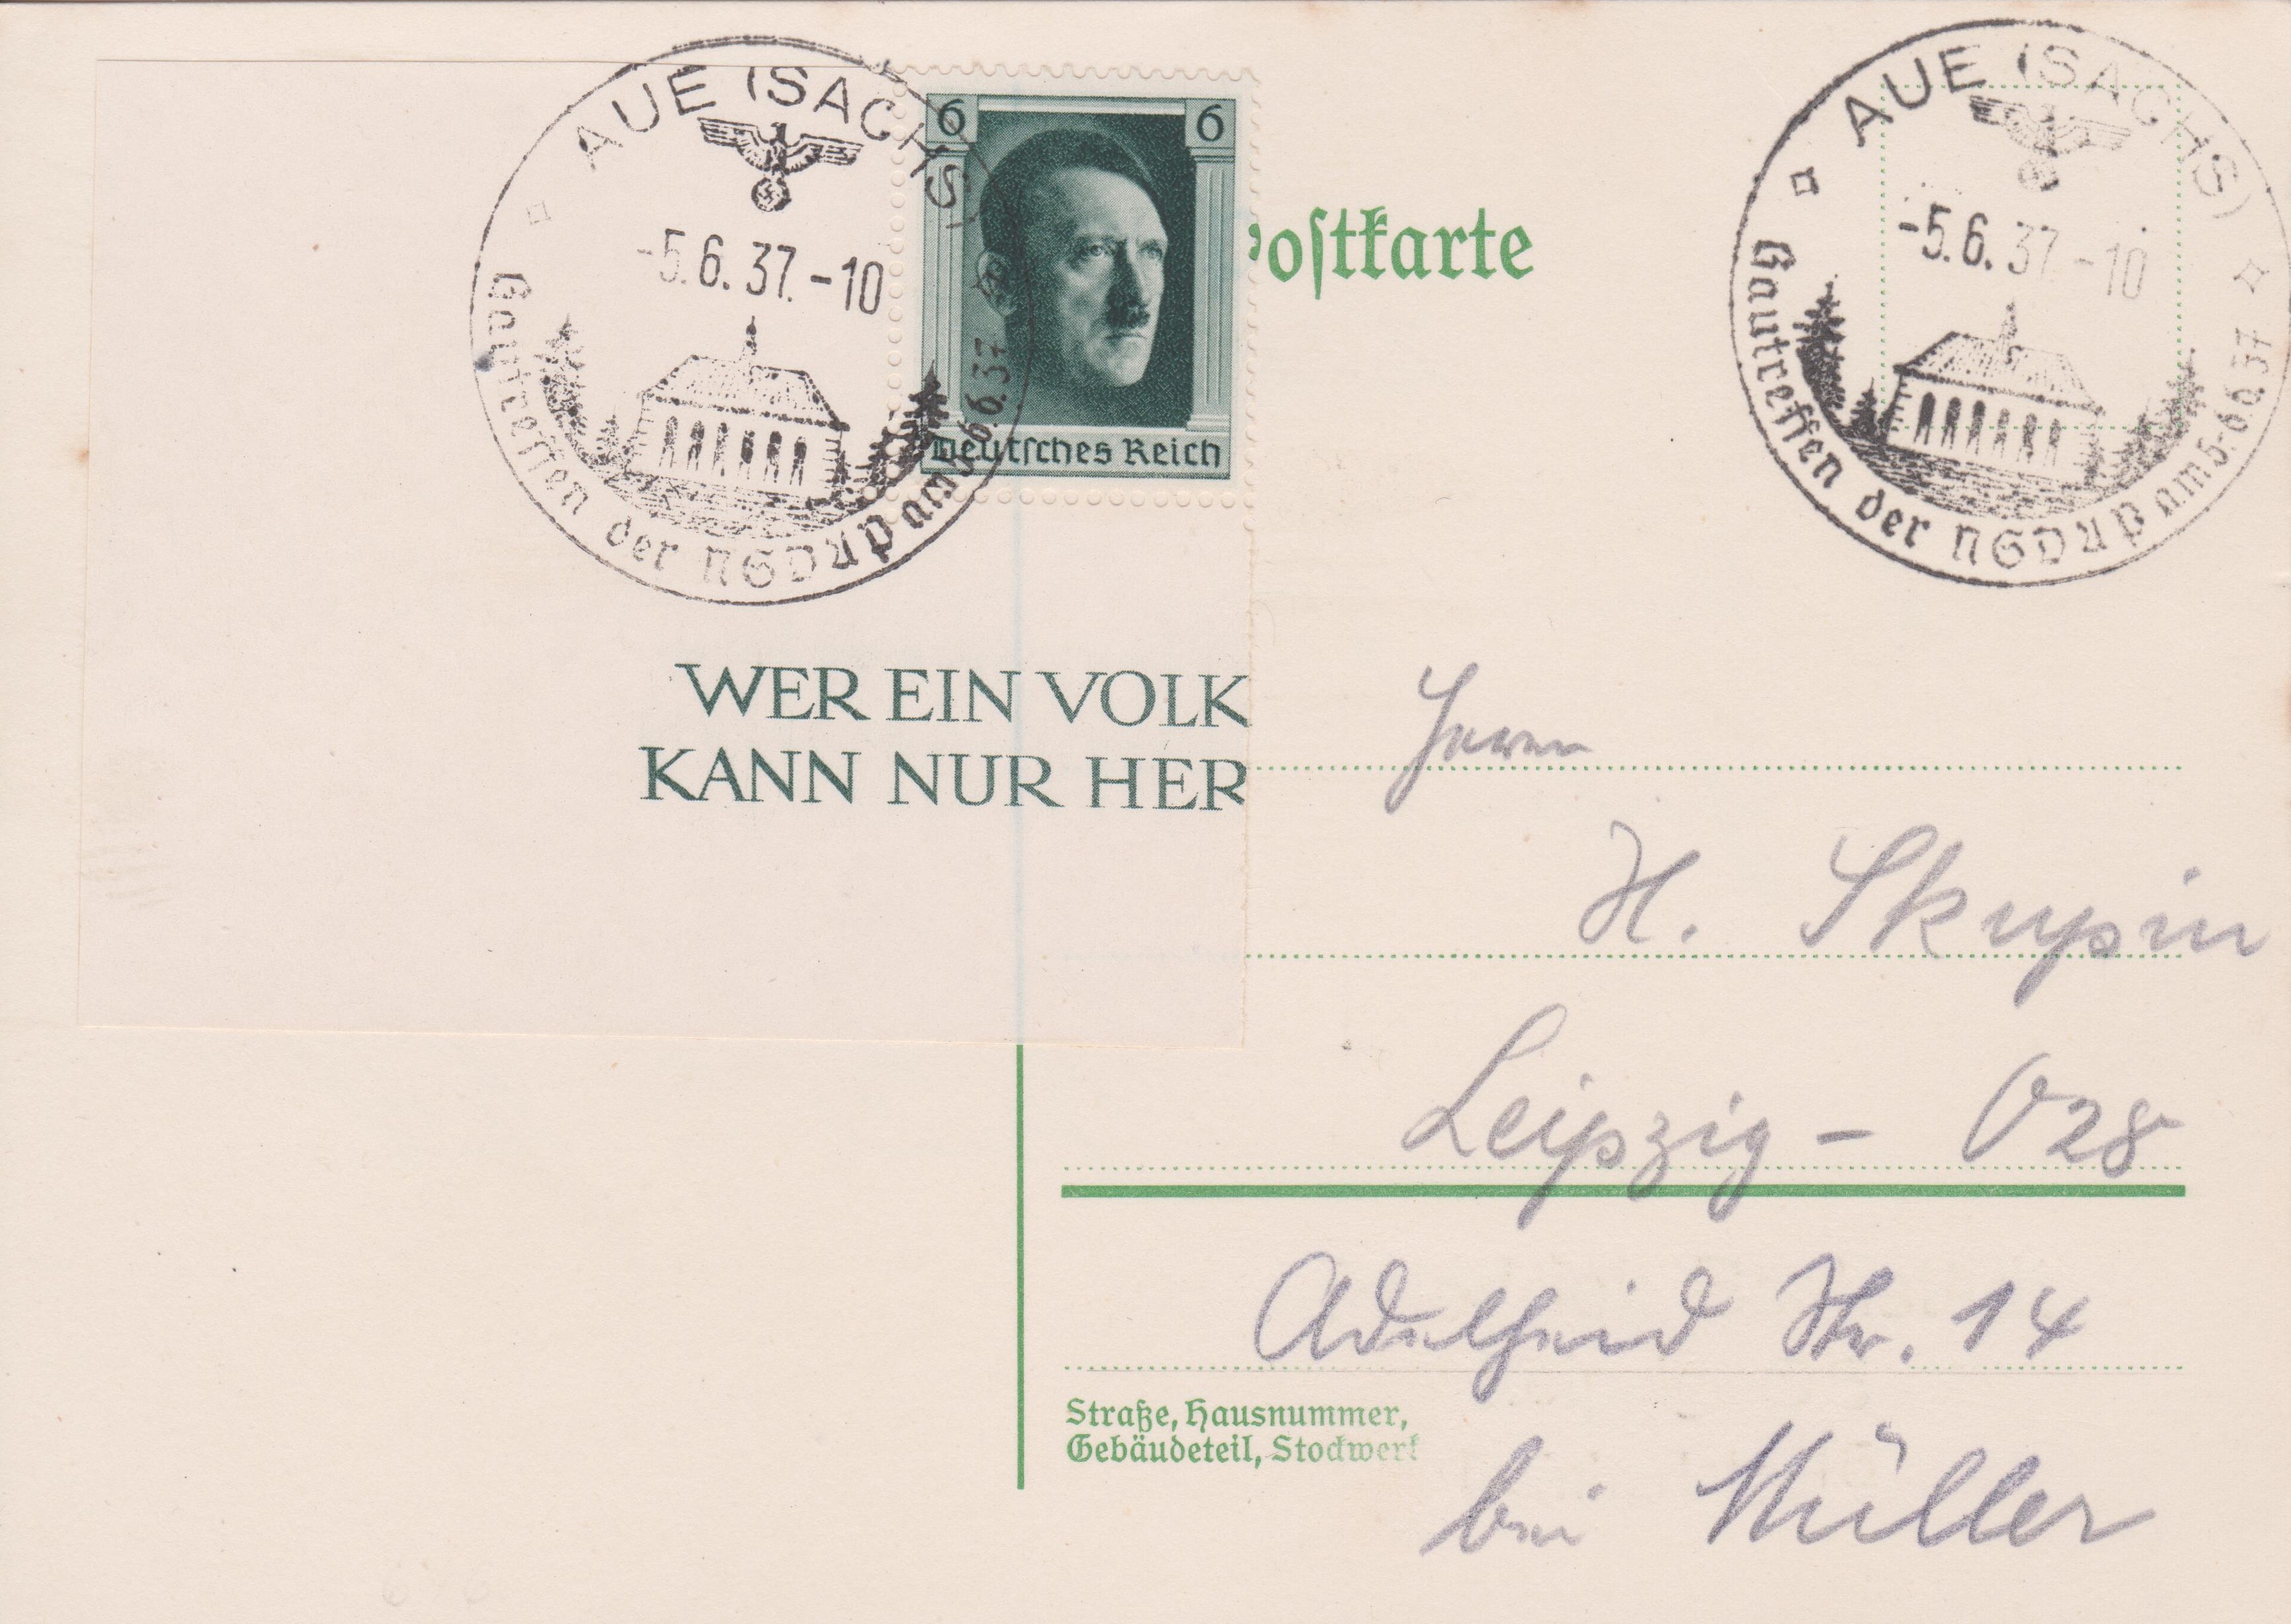 AUE (SACHS)
-5.6.37.-10
Gautreffen der NSDAP am 5.-6.6.37
6 6
Deutsches Reich
Postkarte
AUE (SACHS)
-5.6.37.-10
Gautreffen der NSDAP am 5.-6.6.37
WER EIN VOLK
KANN NUR HER
Herrn
H. Skupin
Leipzig - O28
Adelheid Str. 14
Straße, Hausnummer,
Gebäudeteil, Stockwerk
bei Müller